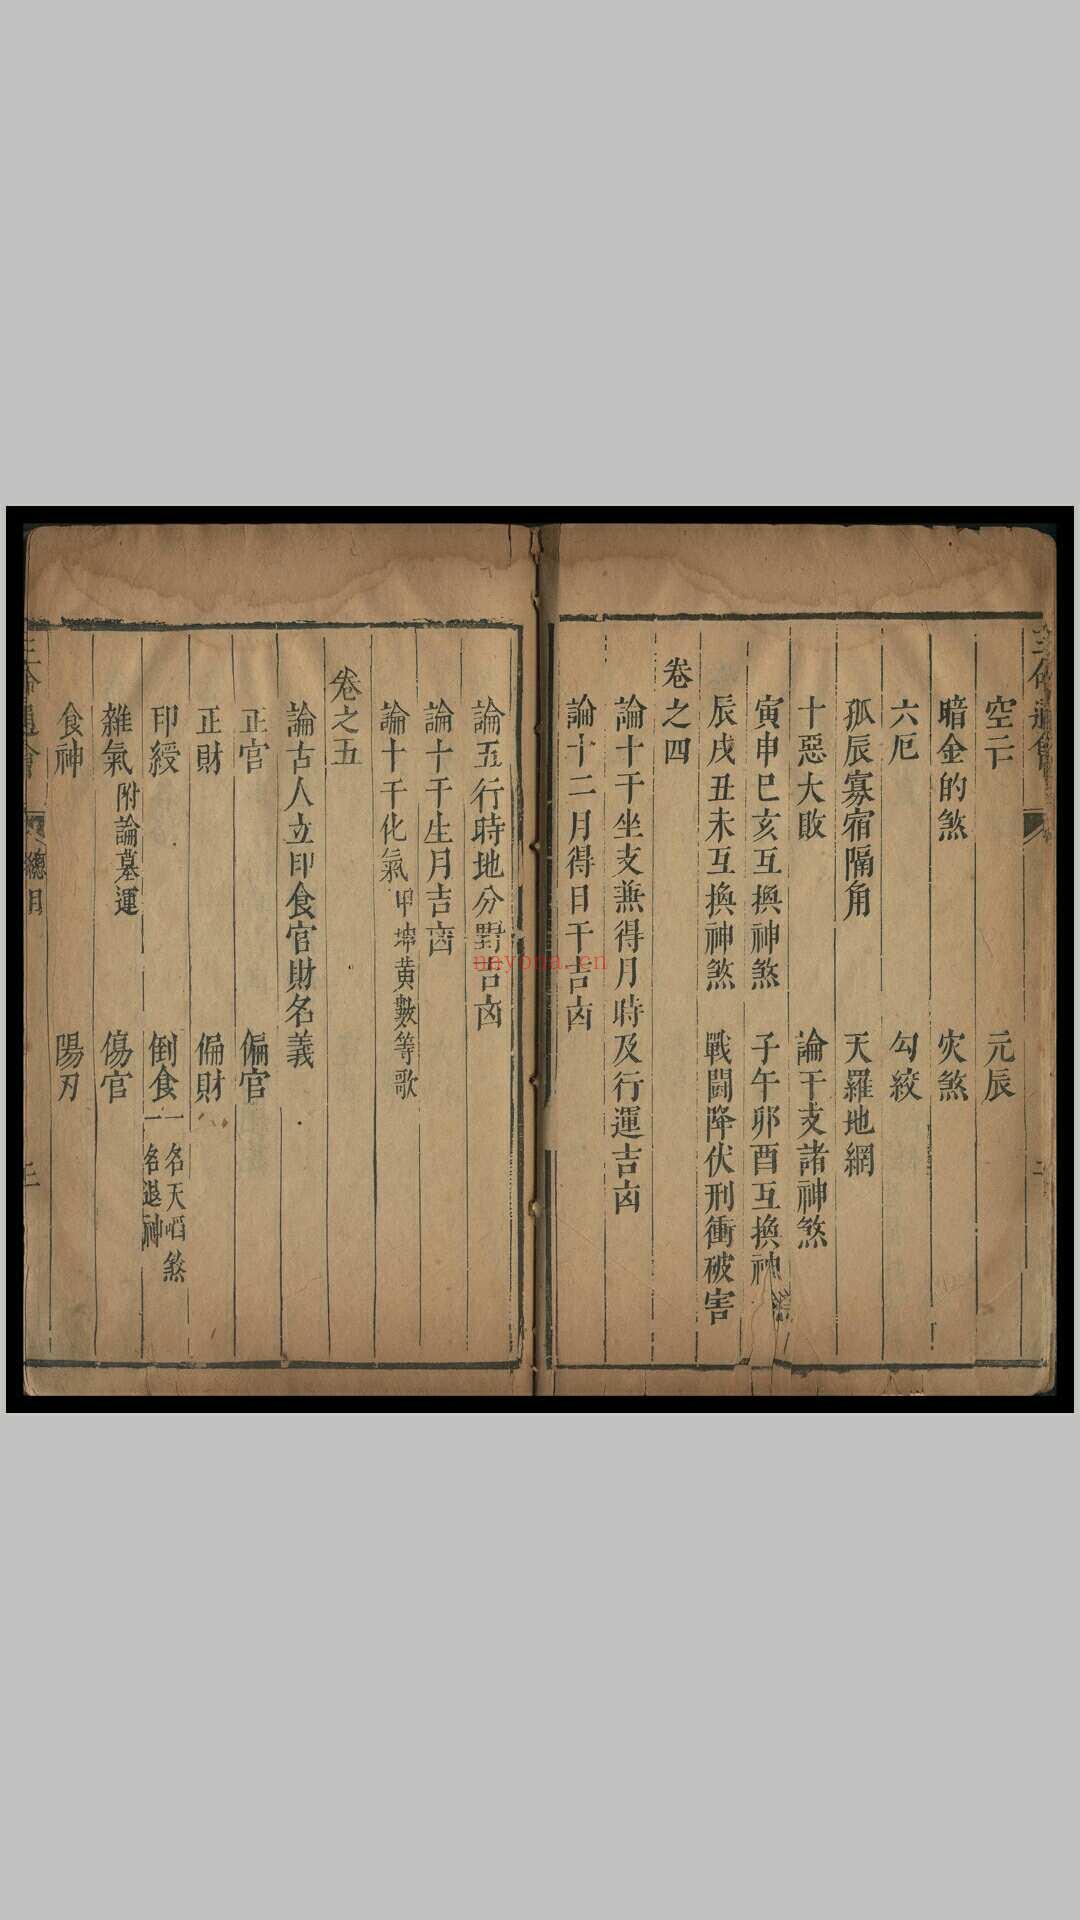 三命通會
空亡　元辰
暗金的煞　灾煞
六厄　勾絞
孤辰寡宿隔角　天羅地網
十惡大敗　論干支諸神煞
寅申巳亥互換神煞　子午卯酉互換神
辰戌丑未互換神煞　戰鬪降伏刑衝破害
卷之四
論十干坐支兼得月時及行運吉凶
論十二月得日干吉凶
論五行時地分野吉凶
論十干生月吉凶
論十干化氣
等歌
卷之五
論古人立印食官財名義
正官　偏官
正財　偏財
印綬　倒食一名天𠹉煞
一名退神
雜氣附論墓運　傷官
食神　陽刃
三命通會　總目
nayona.cn